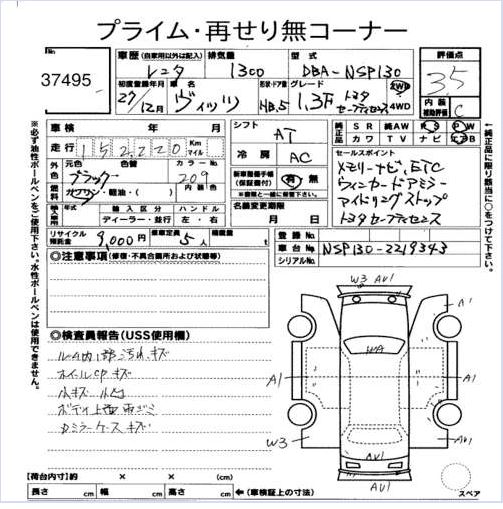 プライム・再せり無コーナー
37495
車歴(自家用以外は記入) 排気量 型式
レンタ 1300 DBA-NSP130
評価点
3.5
初度登録年月 車名 形状・ドア数 グレード 2WD 4WD
27年12月 ヴィッツ HB.5 1.3F トヨタセーフティセンス
内装補助評価 C
車検 年 月
シフト AT
純正品 SR 純AW PS PW
カワ TV ナビ エアB
走行 152,220 Km マイル
冷房 AC
セールスポイント
メモリーナビ、ETC
ウィンカードアミラー
アイドリングストップ
トヨタセーフティセンス
外色 元色 色替 カラーNo.
ブラック 209
燃料 ガソリン・軽油・( ) 内装色
新車整備手帳(保証書付) 有・無
輸入車 年式 輸入区分 ハンドル
ディーラー・並行 左・右
名義変更期限 月 日
リサイクル預託金 9,000円 乗車定員 5人 積載量 t
登録No.
車台No. NSP130-2219343
シリアルNo.
◎注意事項(修復・不具合箇所および状態等)
◎検査員報告(USS使用欄)
ルーム内1部汚れキズ
ホイールCPキズ
小キズ 小凹
ボディ上面雨ジミ
カミラーケースキズ
W3 AU1
A1
A1
A1
W3
AU1
AU1
スペア
【荷台内寸】約 × × ( cm)
長さ cm 幅 cm 高さ cm ←(車検証上の寸法)
※必ず油性ボールペンをご使用下さい。水性ボールペンは使用できません。
←純正品に限り該当項目に○をつけて下さい。